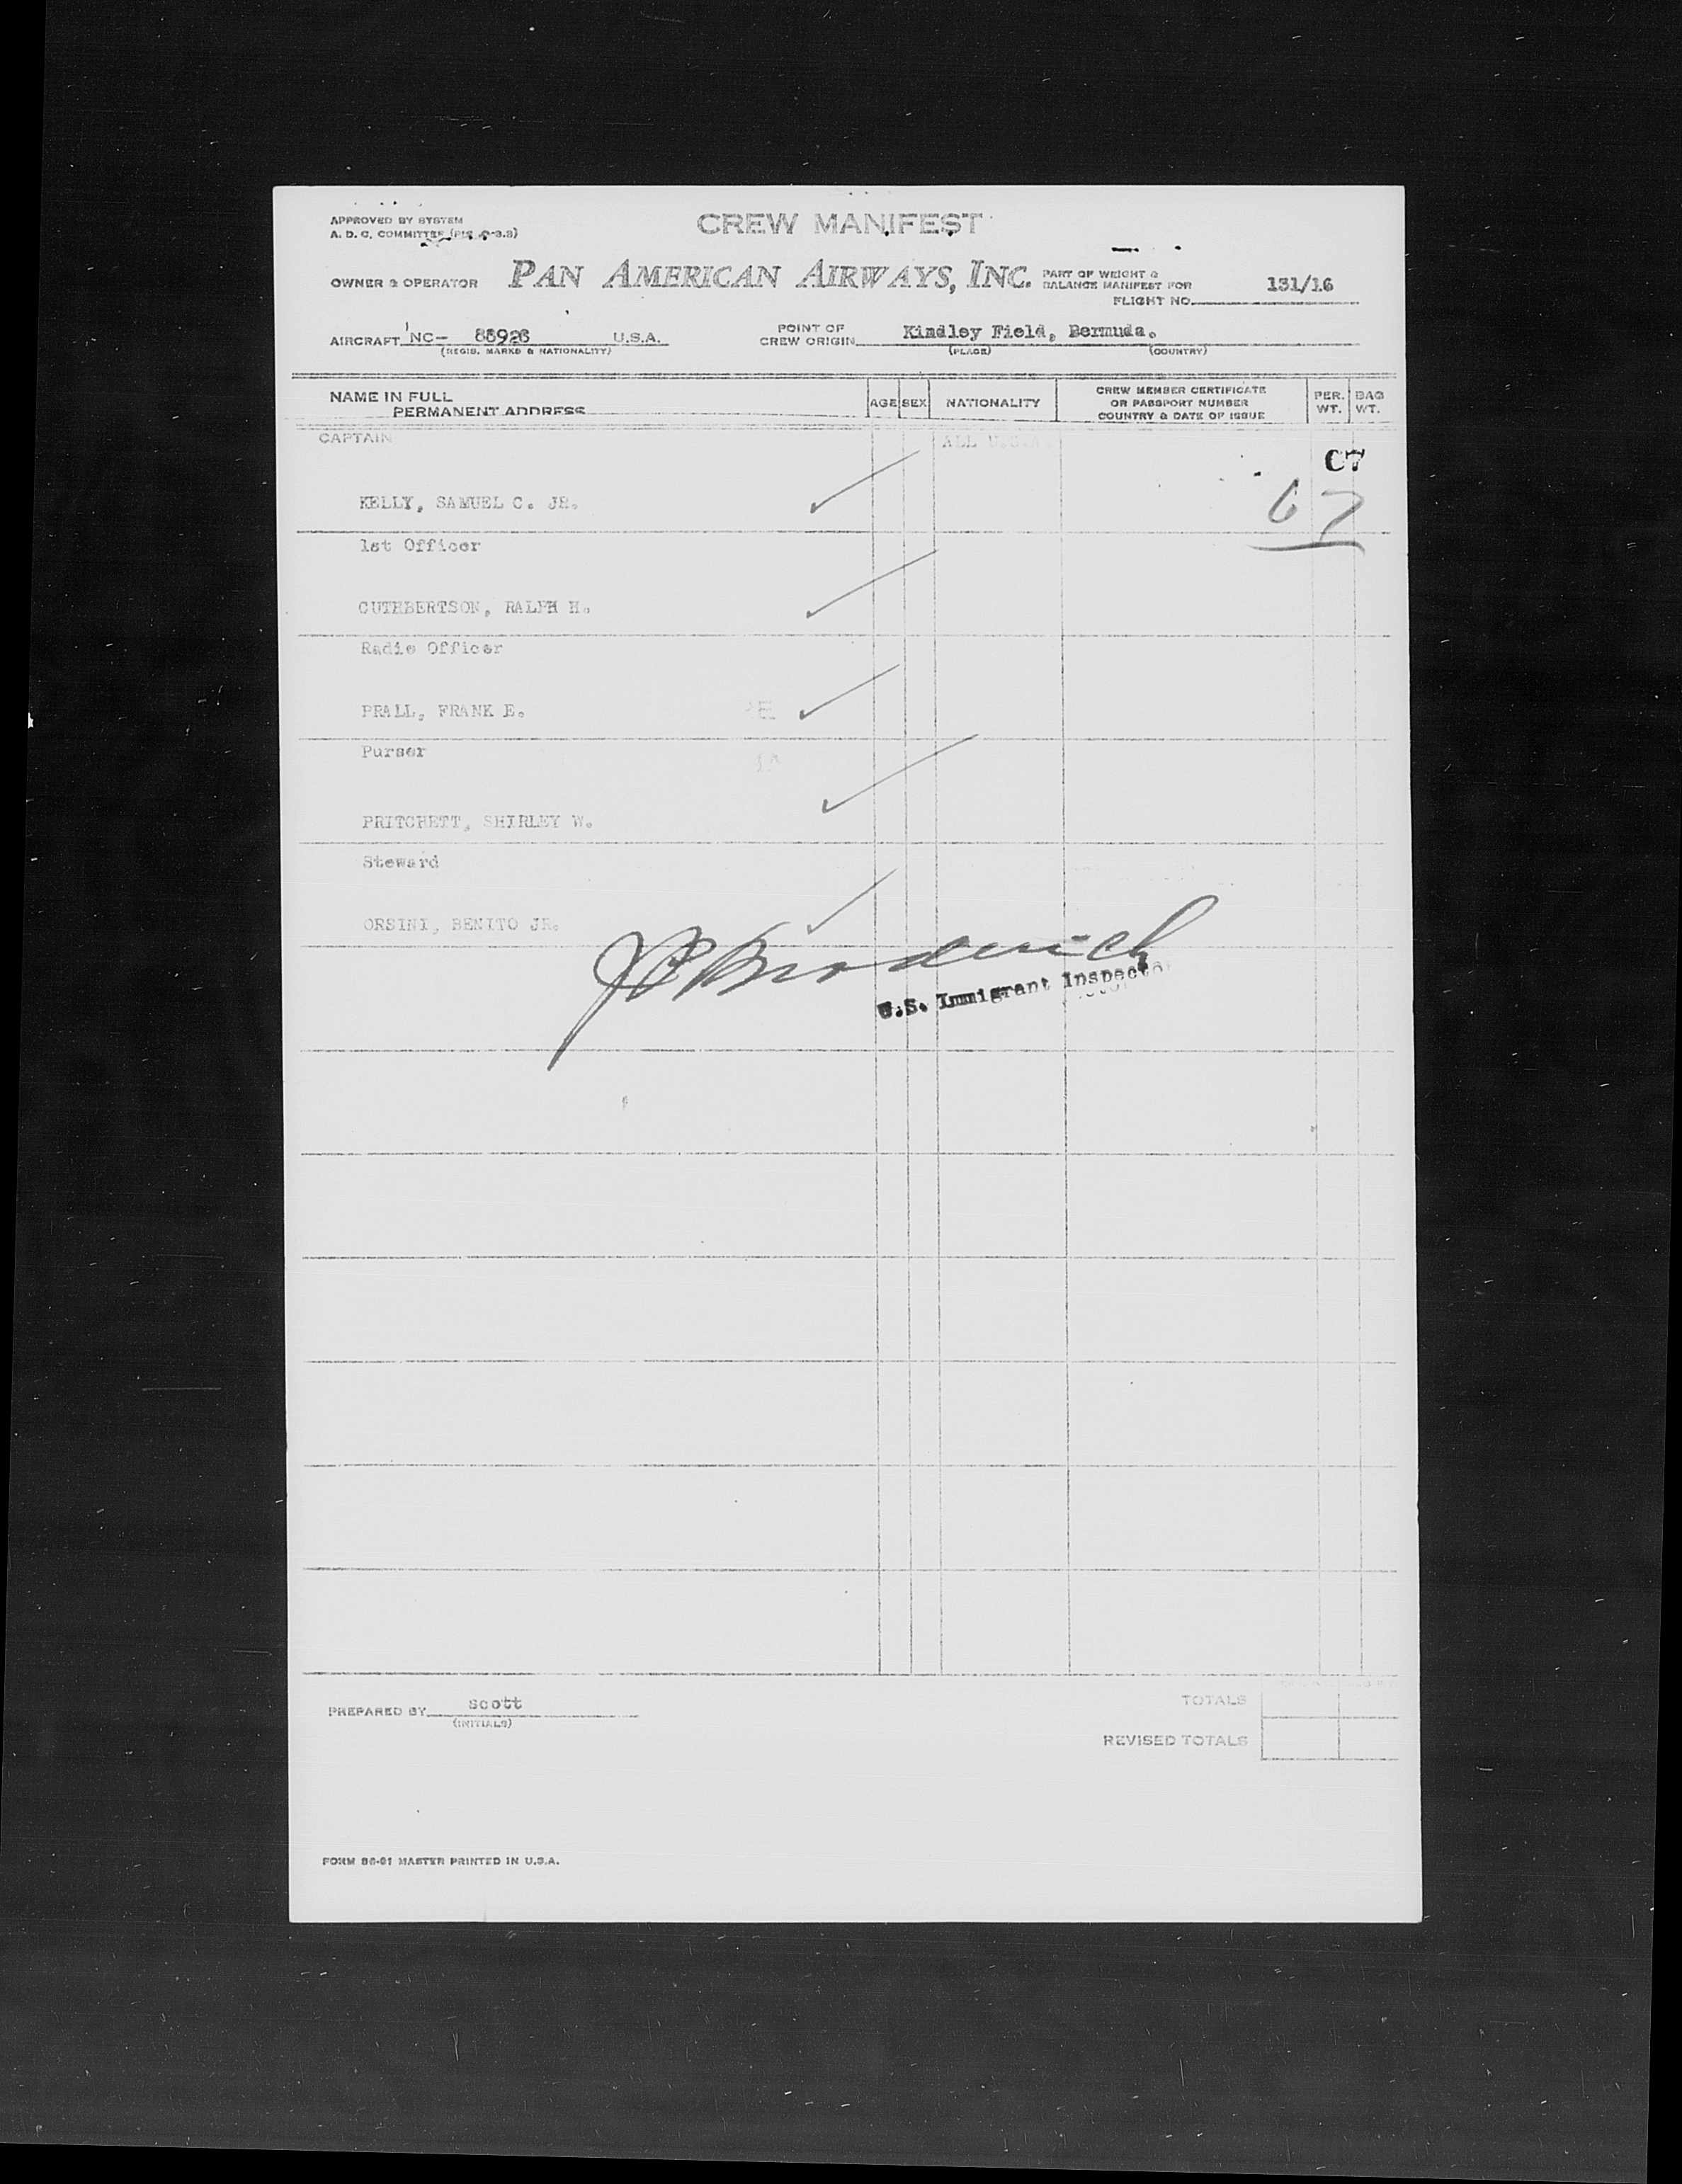 APPROVED BY SYSTEM
A. D. C. COMMITTEE
CREW MANIFEST
OWNER & OPERATOR PAN AMERICAN AIRWAYS, INC. PART OF WEIGHT &
BALANCE MANIFEST FOR
FLIGHT NO. 131/16
AIRCRAFT NC- 88926 U.S.A. POINT OF
CREW ORIGIN Kindley Field, Bermuda.
(REGIS. MARKS & NATIONALITY) (PLACE) (COUNTRY)
NAME IN FULL
PERMANENT ADDRESS
AGE SEX NATIONALITY
CREW MEMBER CERTIFICATE
OR PASSPORT NUMBER
COUNTRY & DATE OF ISSUE
PER.
WT.
BAG
WT.
CAPTAIN ALL U.S.A
C7
KELLY, SAMUEL C. JR.
67
1st Officer
CUTHBERTSON, RALPH H.
Radio Officer
PRALL, FRANK E.
Purser
PRITCHETT, SHIRLEY W.
Steward
ORSINI, BENITO JR.
Broderick
U.S. Immigrant Inspector
PREPARED BY Scott
(INITIALS)
TOTALS
REVISED TOTALS
FORM 86-01 MASTER PRINTED IN U.S.A.